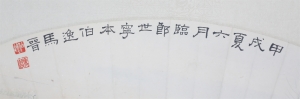 甲戌夏六月臨郎世寧本伯逸馬晉